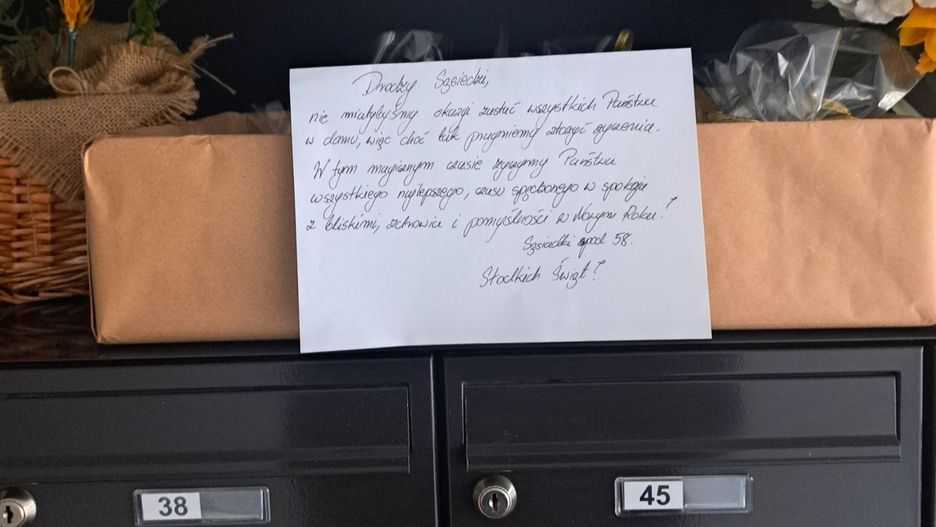 Drodzy Sąsiedzi,
nie mieliśmy okazji zastać wszystkich Państwa
w domu, więc choć tak pragniemy złożyć życzenia.
W tym magicznym czasie życzymy Państwu
wszystkiego najlepszego, czasu spędzonego w spokoju
z bliskimi, zdrowia i pomyślności w Nowym Roku!
Sąsiadki spod 58.
Słodkich Świąt!
38
45